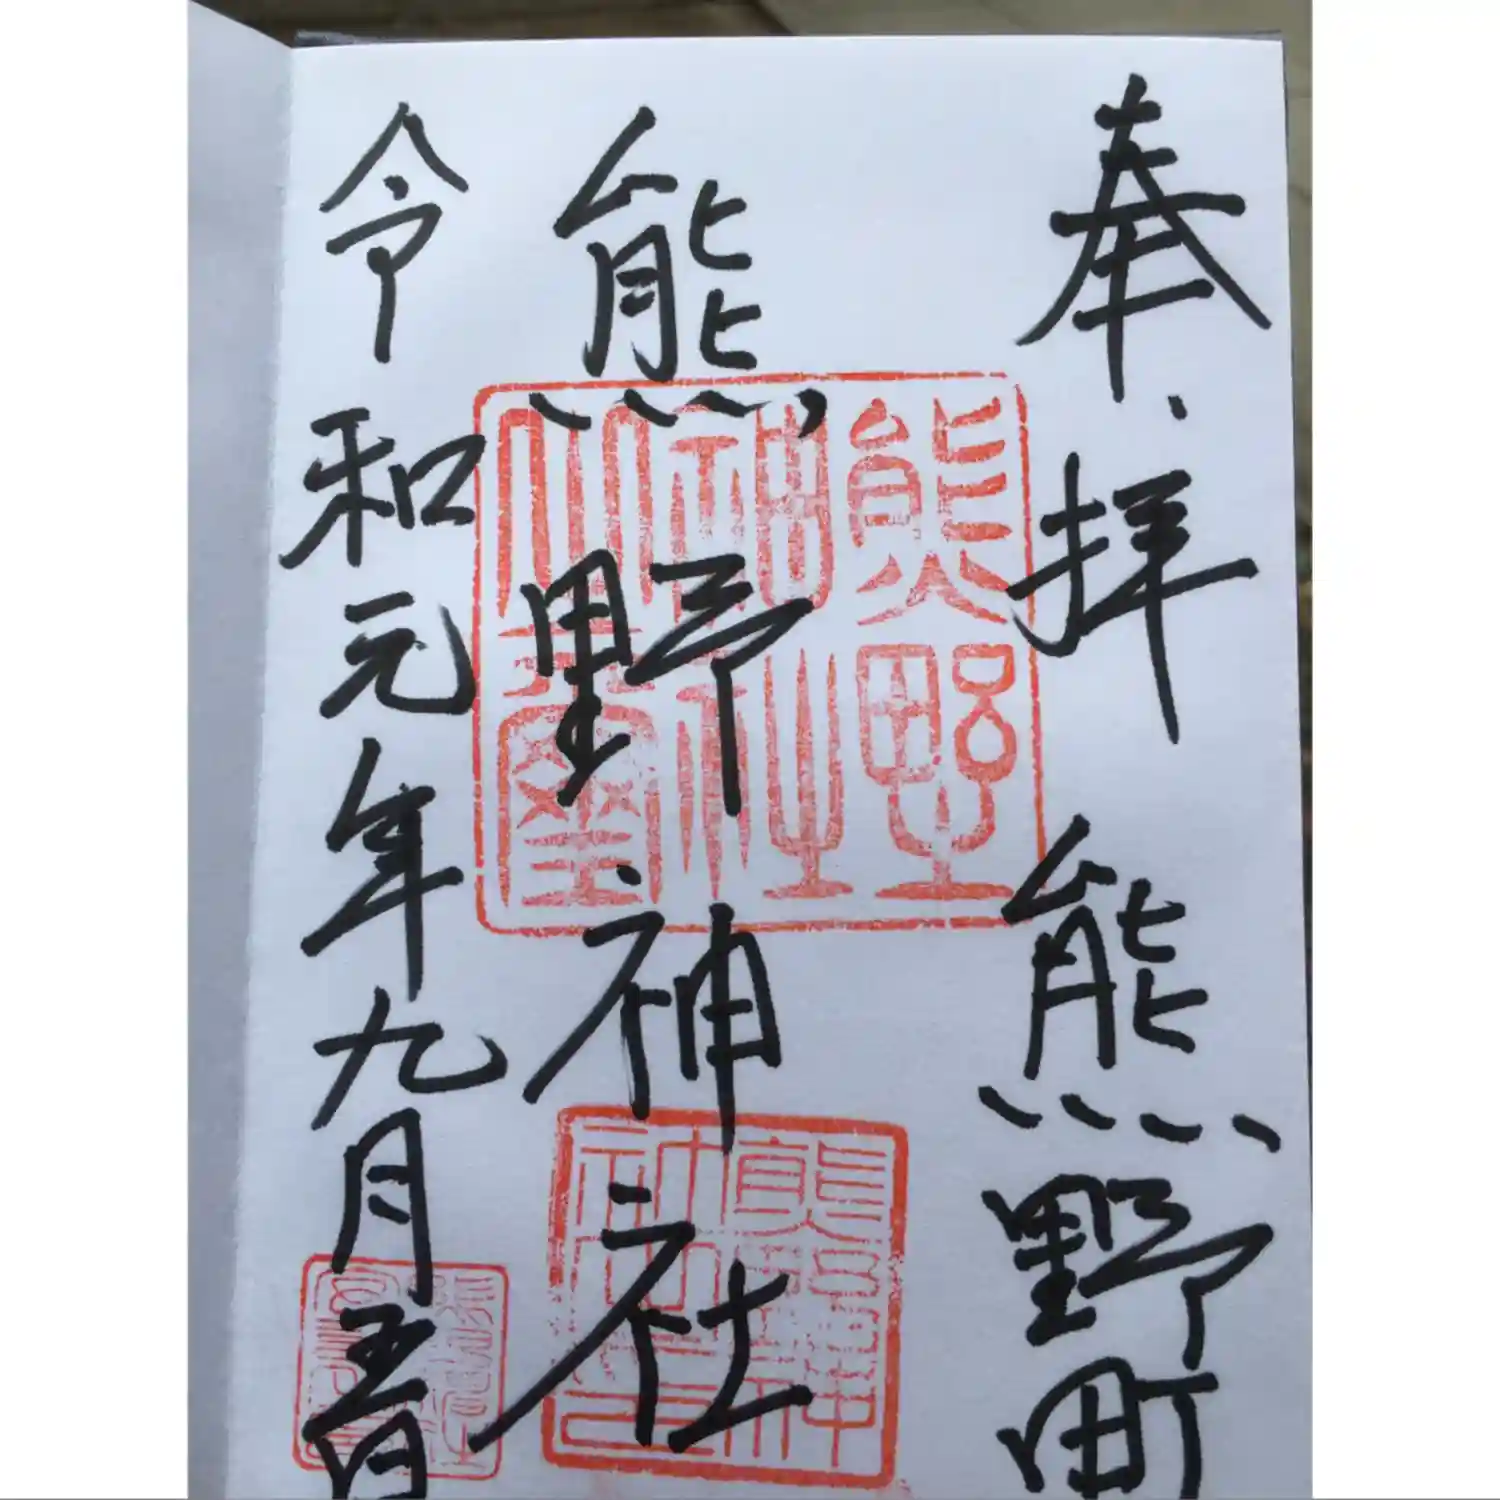 奉拝 熊野町
熊野神社
令和元年九月五日
熊野神社